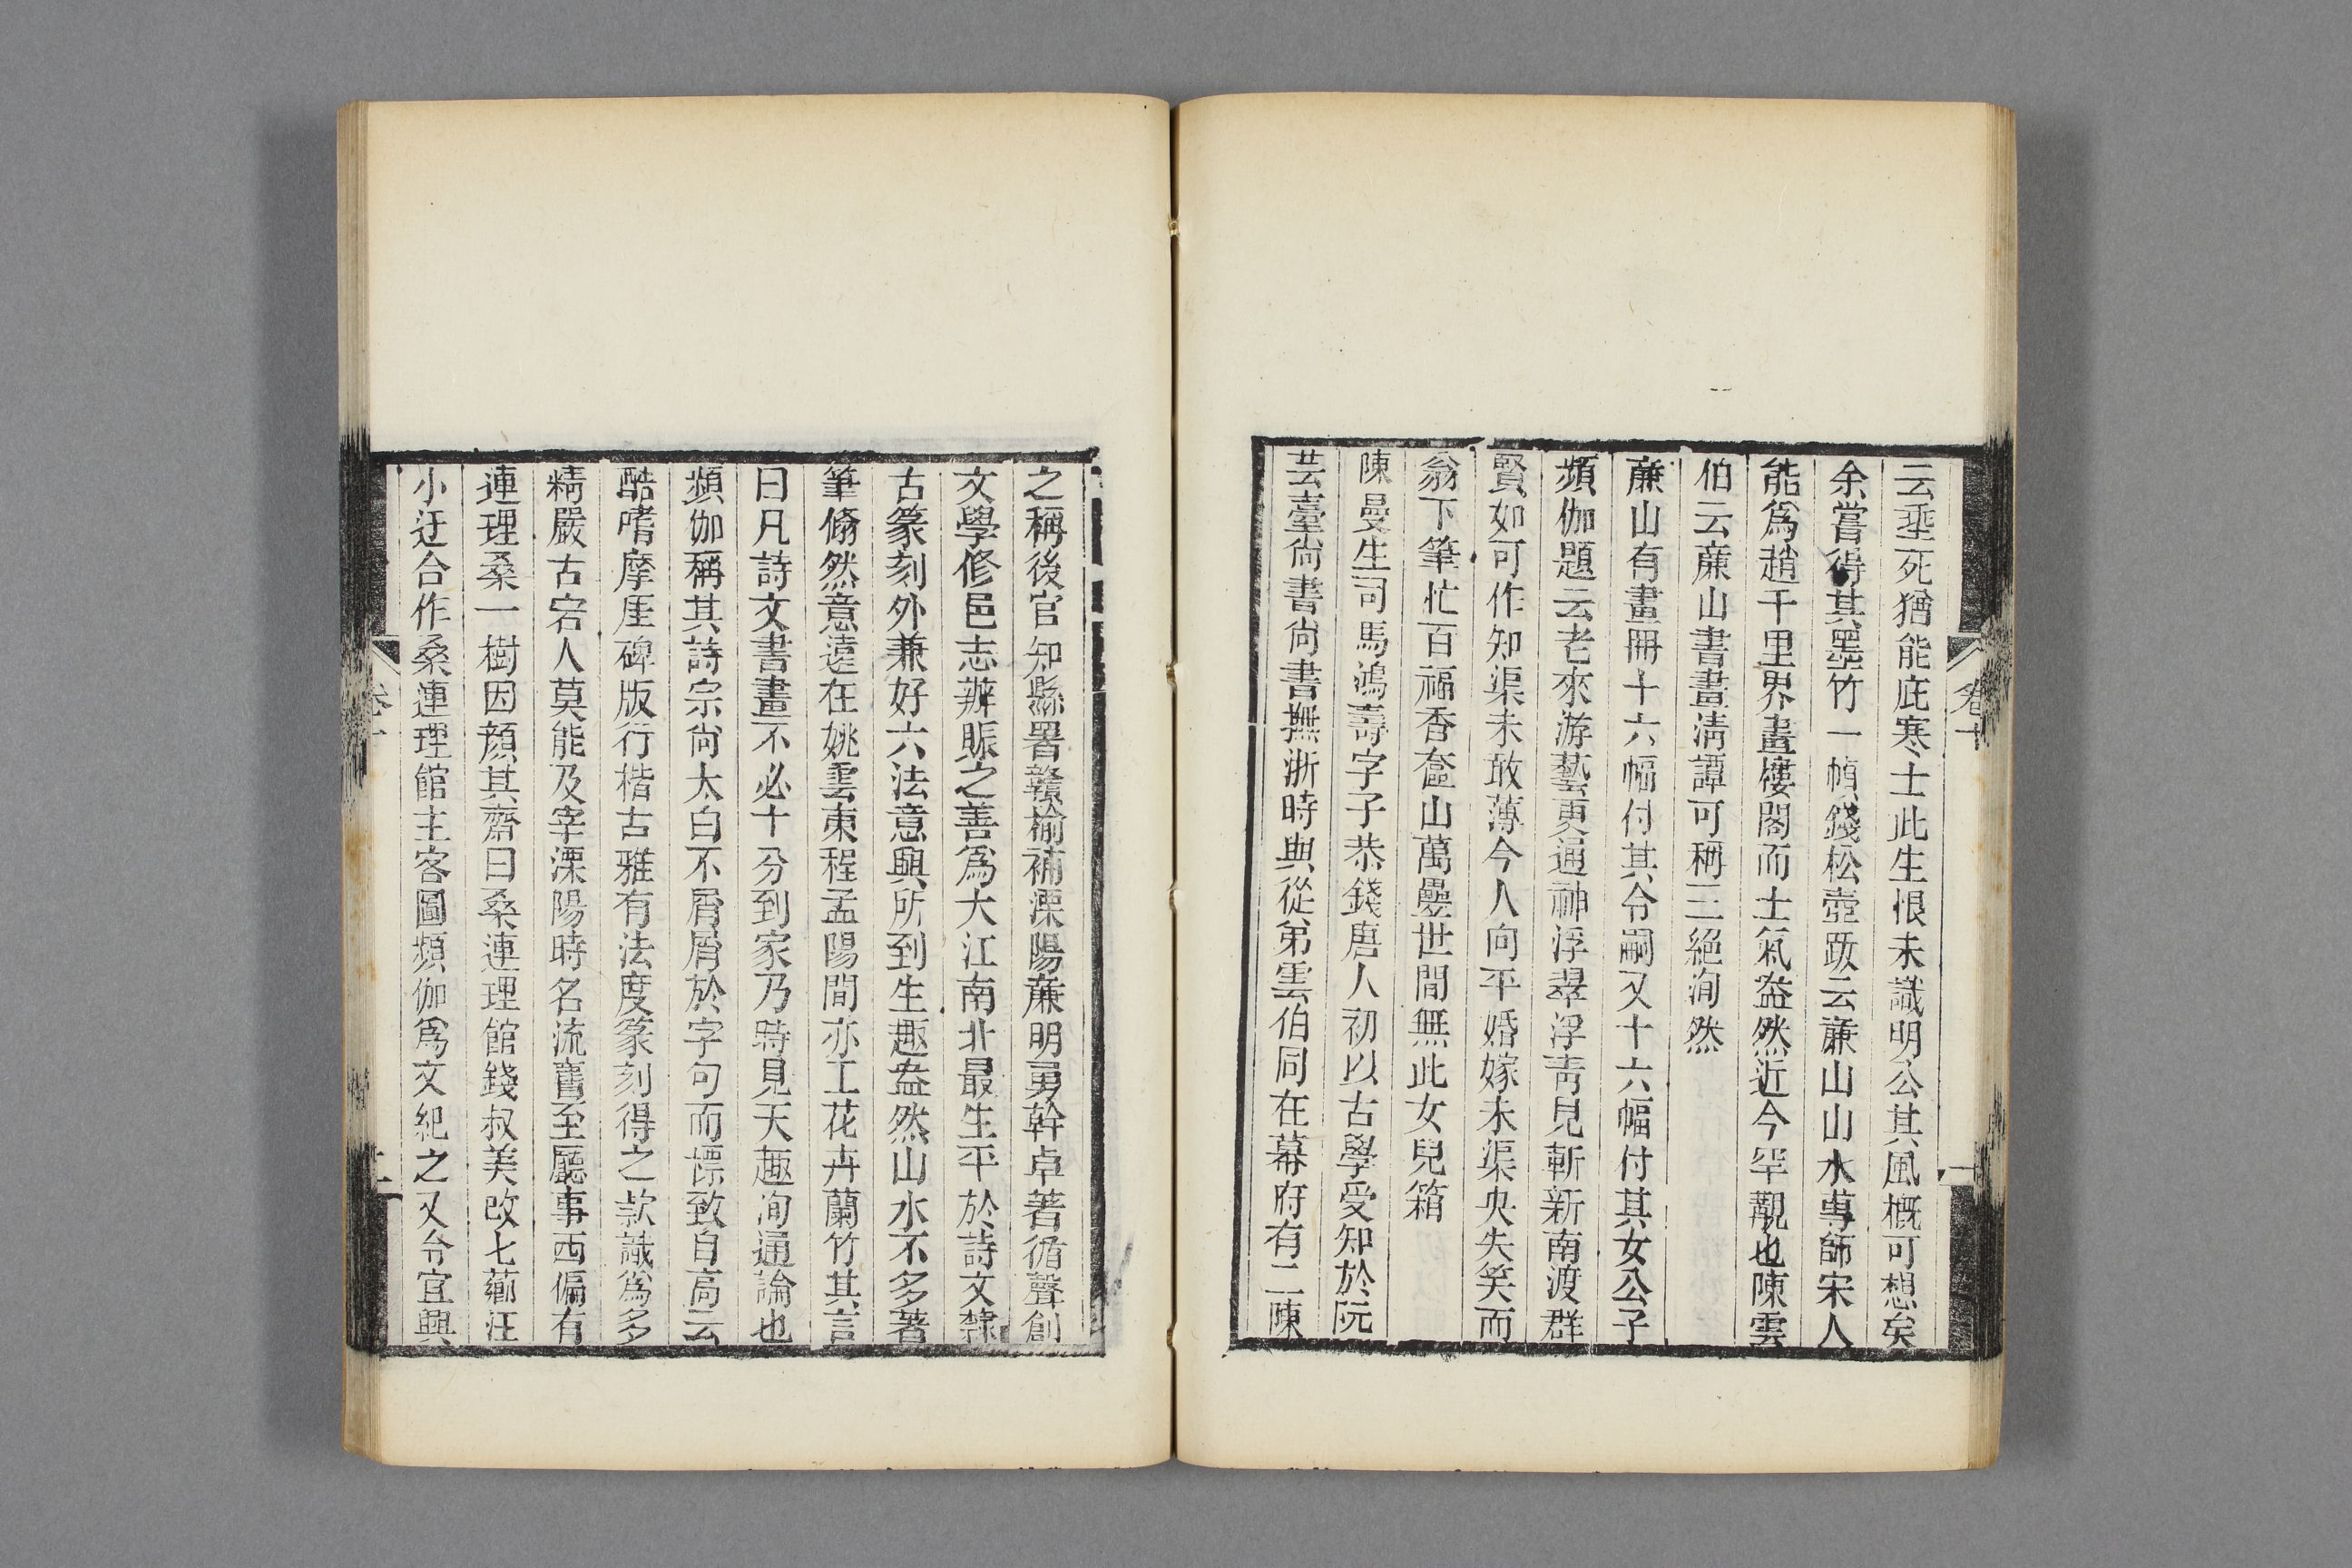 云垂死猶能庇寒士此生恨未識明公其風概可想矣
余嘗得其墨竹一幀錢松壺跋云蓮山山水專師宋人
能爲趙千里界畫樓閣而士氣盎然近今罕覯也陳雲
伯云蓮山書畫淸譚可稱三絕洵然
蓮山有畫冊十六幅付其令嗣又十六幅付其女公子
頻伽題云老來游藝更通神浮翠浮靑見斬新南渡群
賢如可作知渠未敢薄今人向平婚嫁未渠央失笑而
翁下筆忙百福香奩山萬疊世間無此女兒箱
陳曼生司馬鴻壽字子恭錢唐人初以古學受知於阮
芸臺尙書尙書撫浙時與從弟雲伯同在幕府有二陳
卷十
之稱後官知縣署贛榆補溧陽廉明勇幹卓著循聲創
文學修邑志辦賑之善爲大江南北最生平於詩文隸
古篆刻外兼好六法意興所到生趣盎然山水不多著
筆翛然意遠在姚雲東程孟陽間亦工花卉蘭竹其言
曰凡詩文書畫不必十分到家乃時見天趣洵通論也
頻伽稱其詩宗尙太白不屑屑於字句而標致自高云
酷嗜摩厓碑版行楷古雅有法度篆刻得之款識爲多
精嚴古宕人莫能及宰溧陽時名流舊至廳事西偏有
連理桑一樹因顏其齋曰桑連理館錢叔美改七薌汪
小迂合作桑連理館主客圖頻伽爲文紀之又令宜興